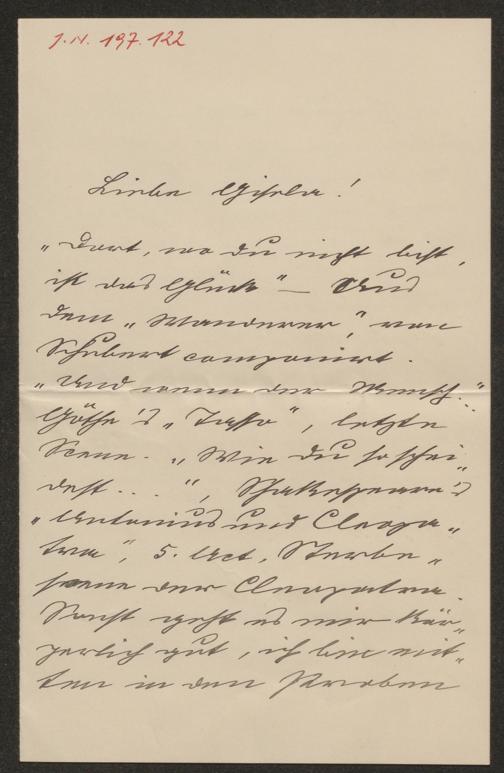 J.N. 197.122
Liebe Gisela!
„Dort, wo du nicht bist,
ist das Glück" – Aus
dem „Wanderer", von
Schubert componirt.
„Und wenn der Mensch..."
Göthe's „Tasso", letzte
Scene. „Wie du so schei„
dest...", Shakespeare's
„Antonius und Cleopa„
tra", 5. Act, Sterbe„
scene der Cleopatra.
Sonst geht es mir kör„
perlich gut, ich bin mit„
ten in den Proben